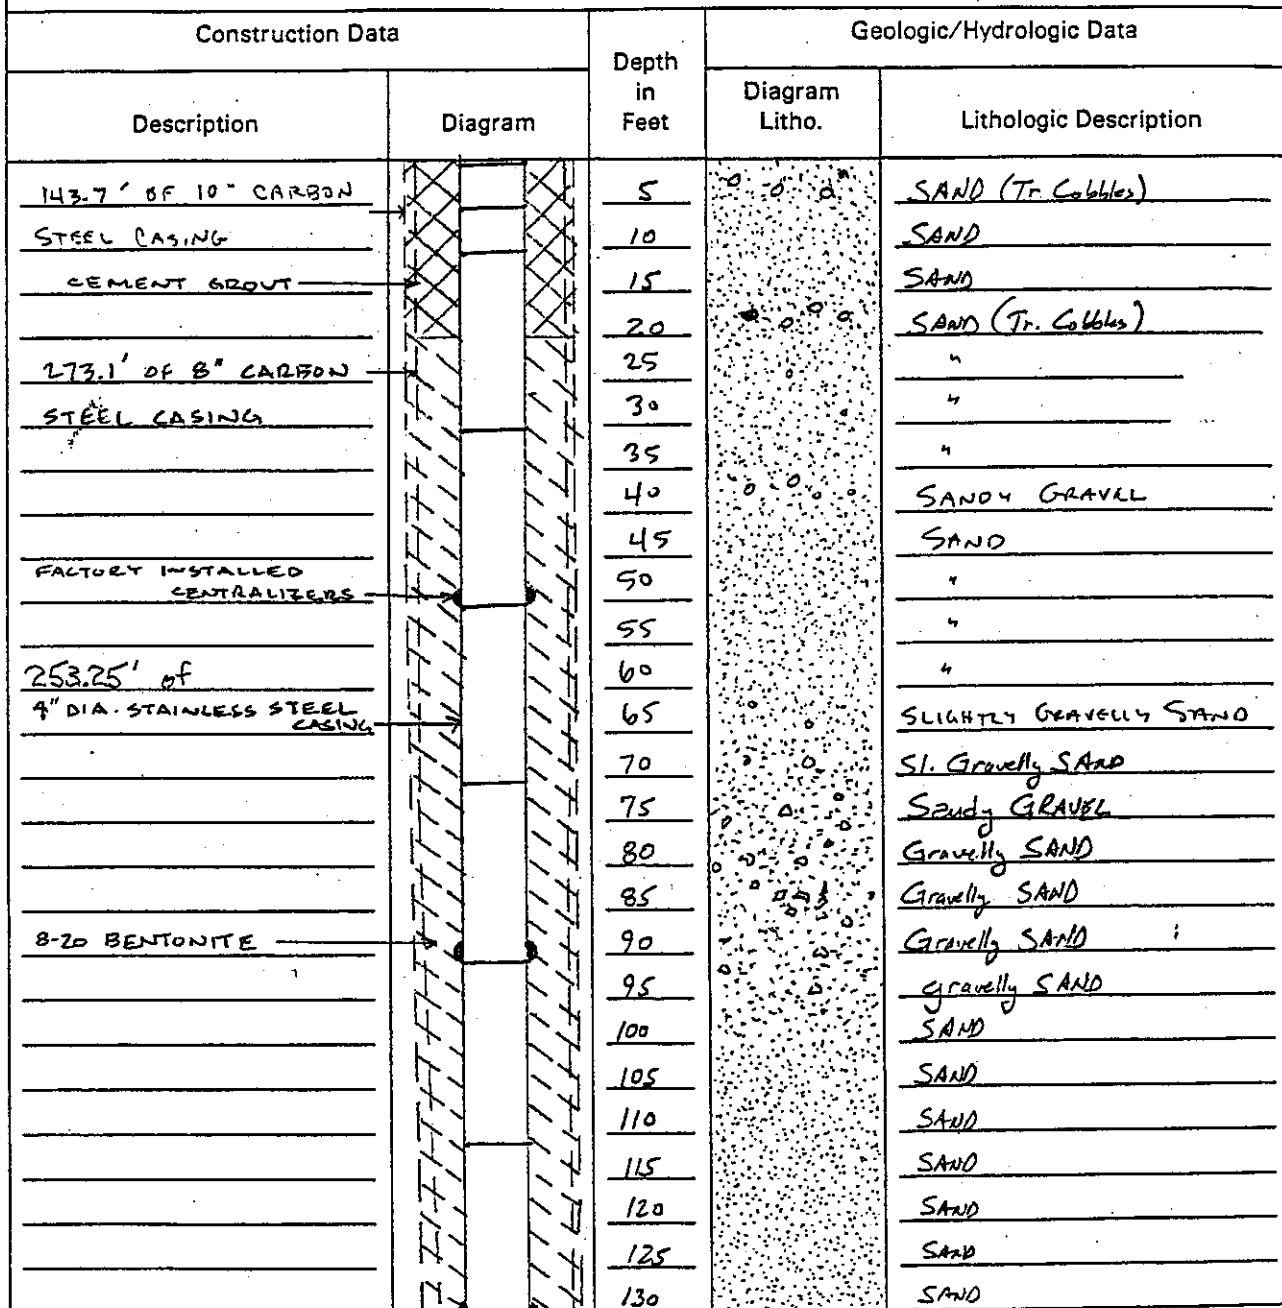 Construction Data
Depth in Feet
Geologic/Hydrologic Data
Description
Diagram
Diagram Litho.
Lithologic Description
143.7' OF 10" CARBON
5
SAND (Tr. Cobbles)
STEEL CASING
10
SAND
CEMENT GROUT
15
SAND
20
SAND (Tr. Cobbles)
273.1' OF 8" CARBON
25
"
STEEL CASING
30
"
35
"
40
SANDY GRAVEL
45
SAND
FACTORY INSTALLED
50
"
CENTRALIZERS
55
"
253.25' of
60
"
4" DIA. STAINLESS STEEL
CASING
65
SLIGHTLY GRAVELLY SAND
70
Sl. Gravelly SAND
75
Sandy GRAVEL
80
Gravelly SAND
85
Gravelly SAND
8-20 BENTONITE
90
Gravelly SAND
95
gravelly SAND
100
SAND
105
SAND
110
SAND
115
SAND
120
SAND
125
SAND
130
SAND